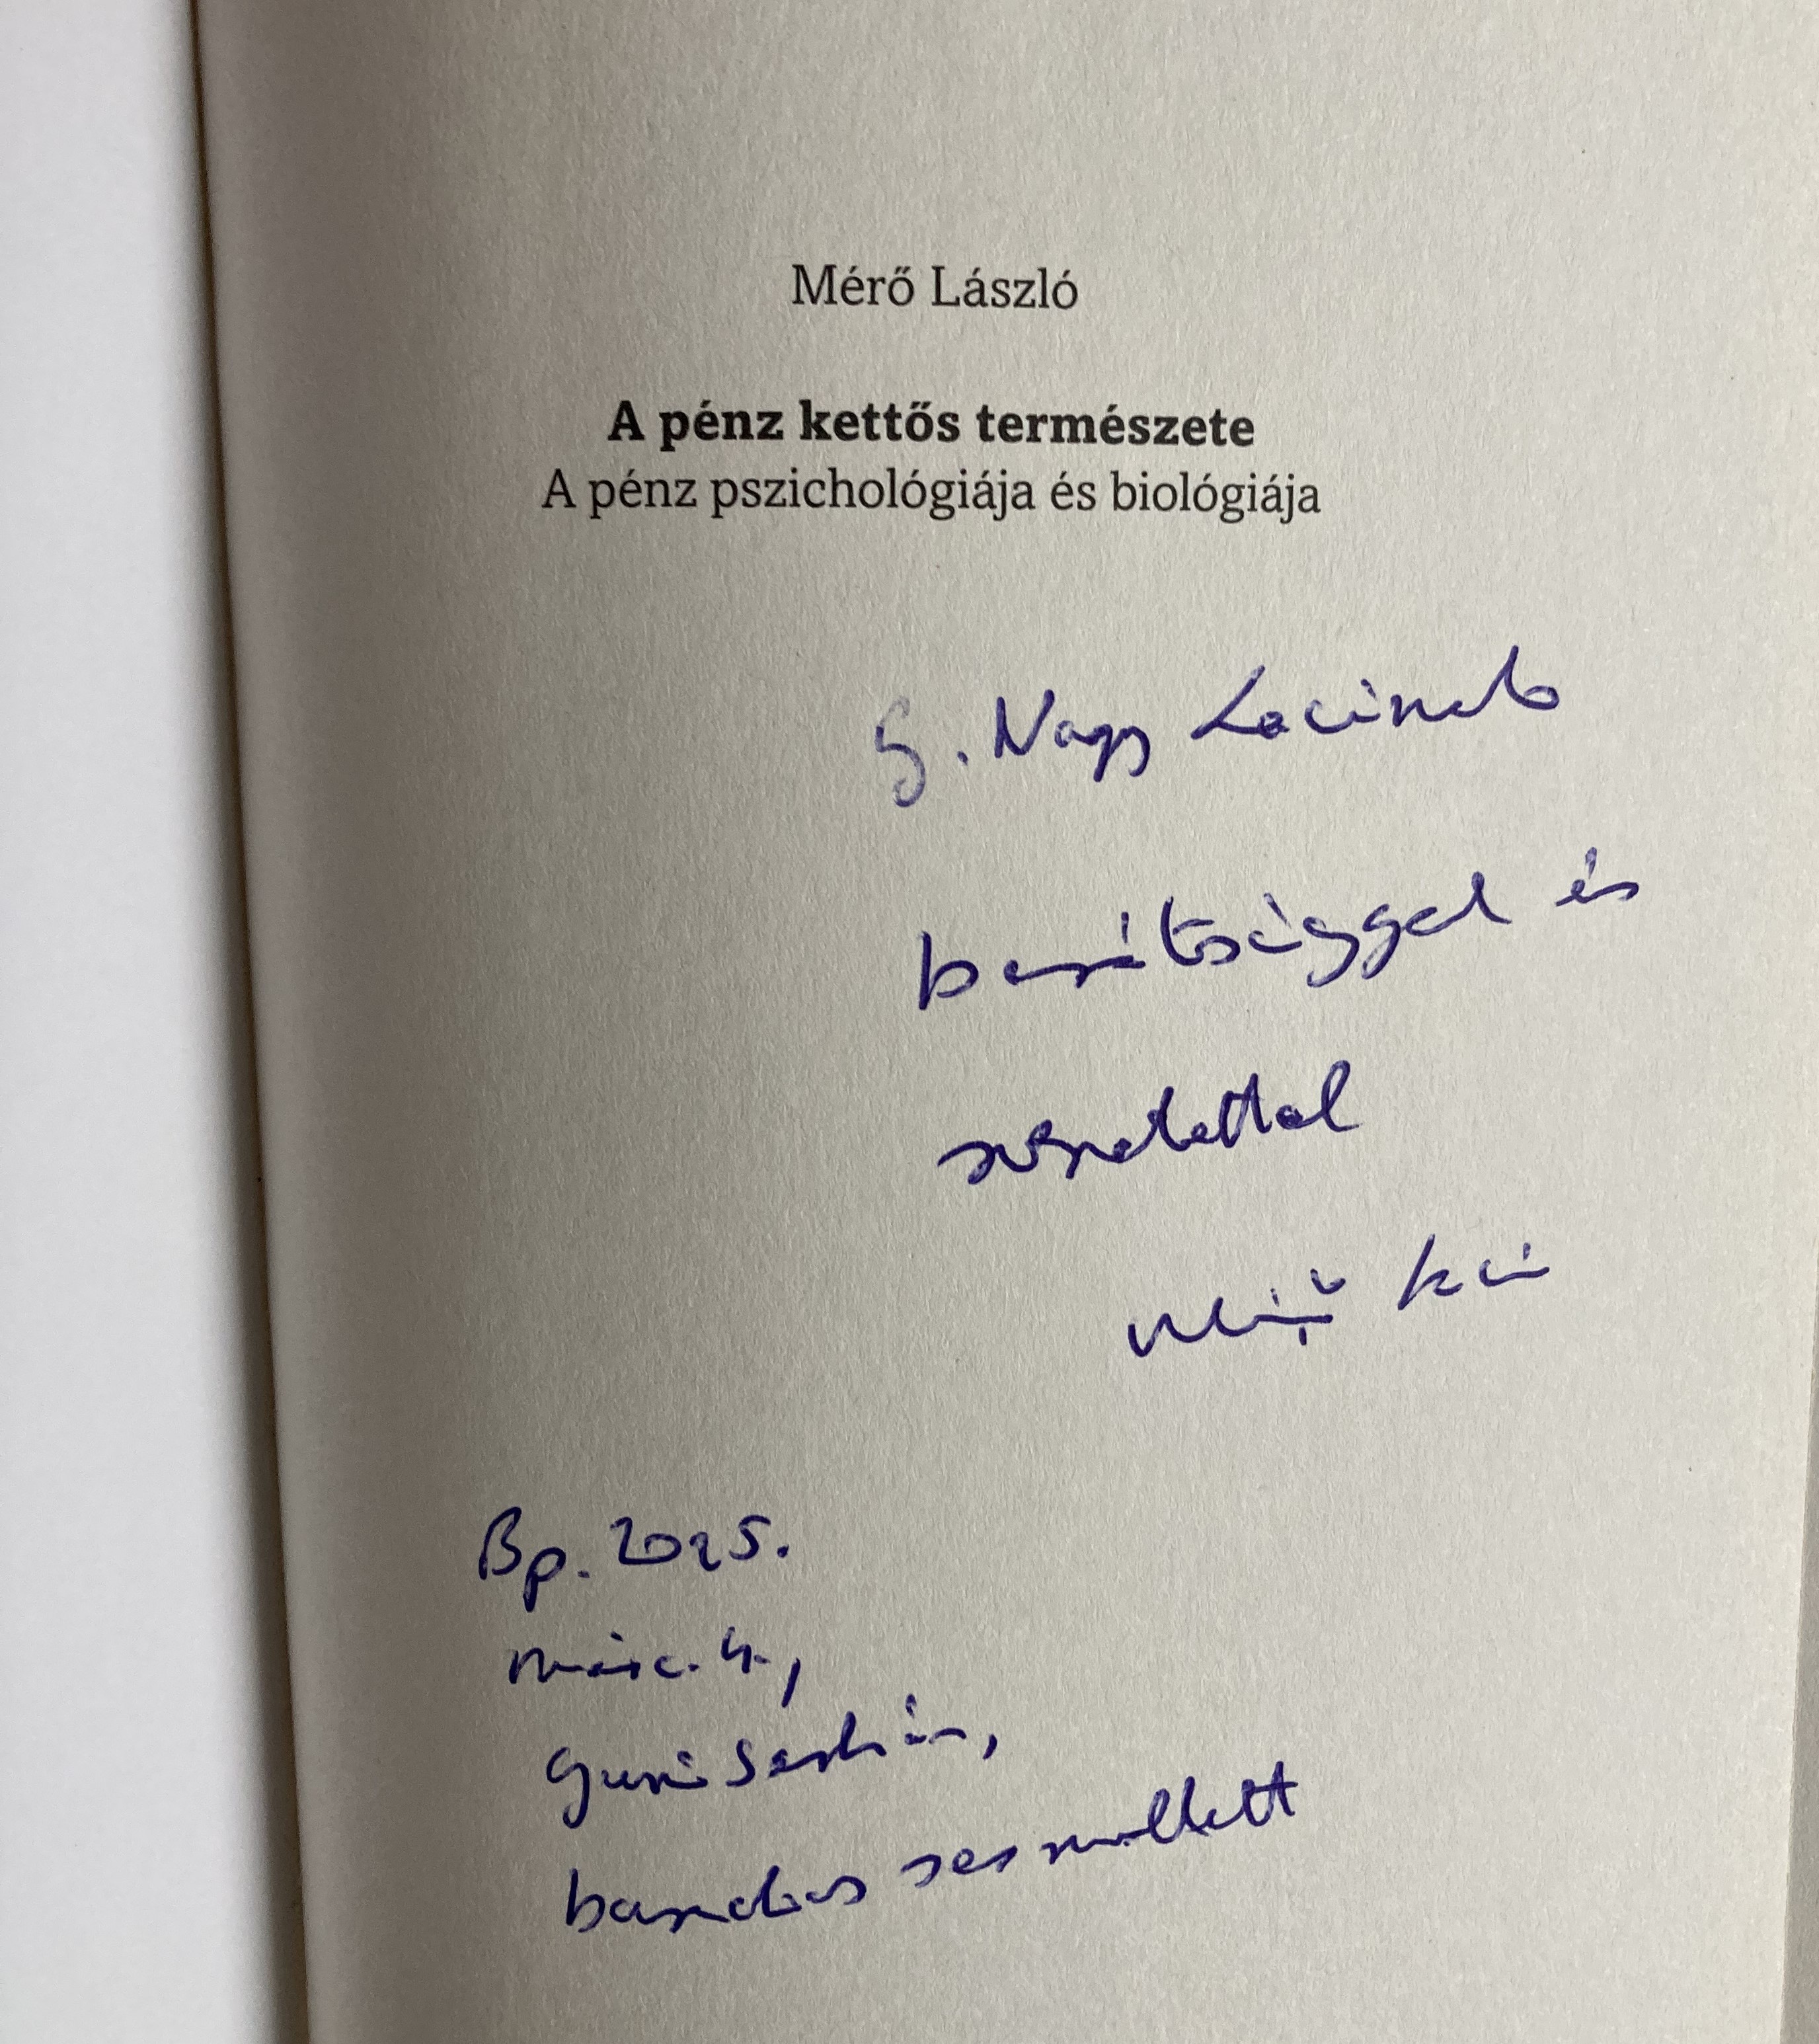 Mérő László
A pénz kettős természete
A pénz pszichológiája és biológiája
G. Nagy Lacinak
barátsággal és
szeretettel
Mérő Laci
Bp. 2025.
márc. 4.,
barackos ser mellett